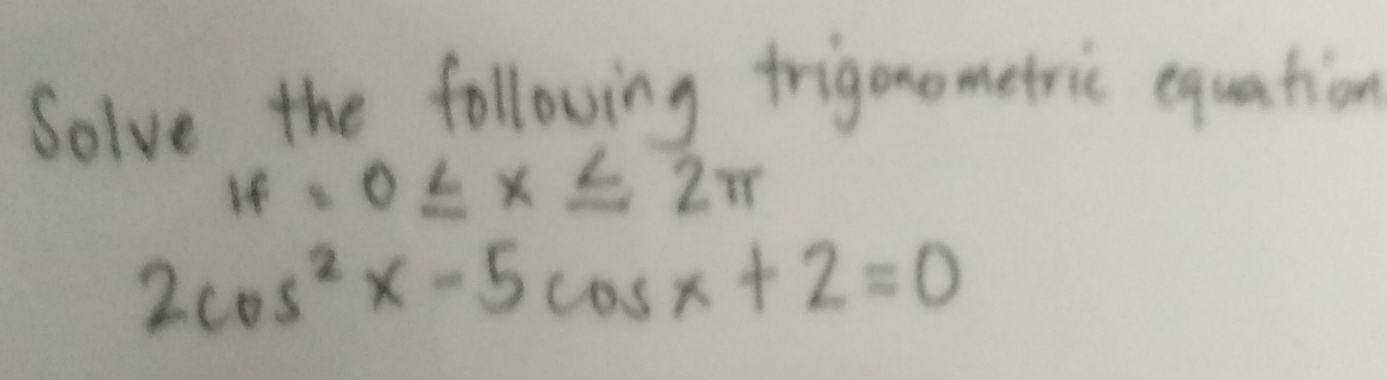 Solve the following trigonometric equation
If 0 ≤ x ≤ 2π
2cos²x - 5cosx + 2 = 0